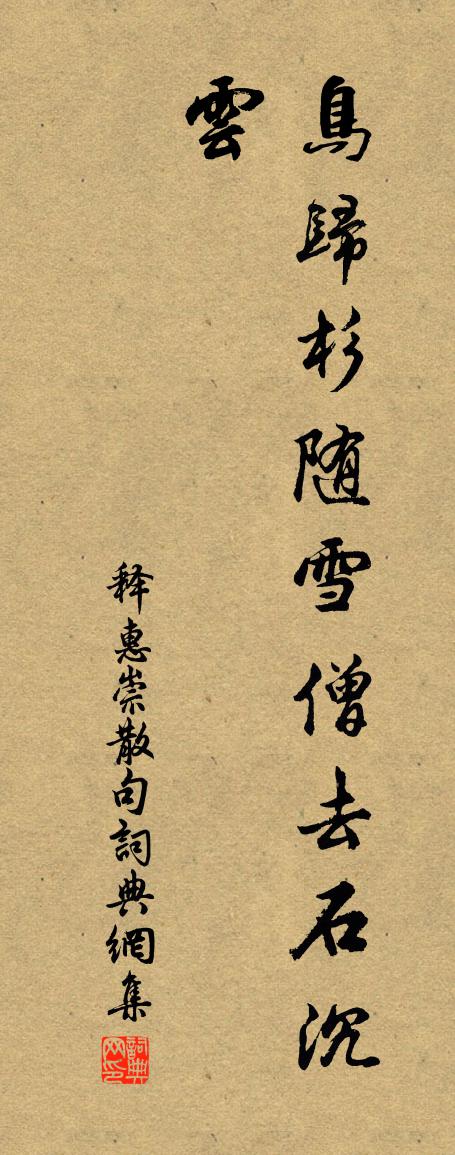 鳥歸杉随雪僧去石沉
雲
释惠崇散句詞典網集
詞典
网印